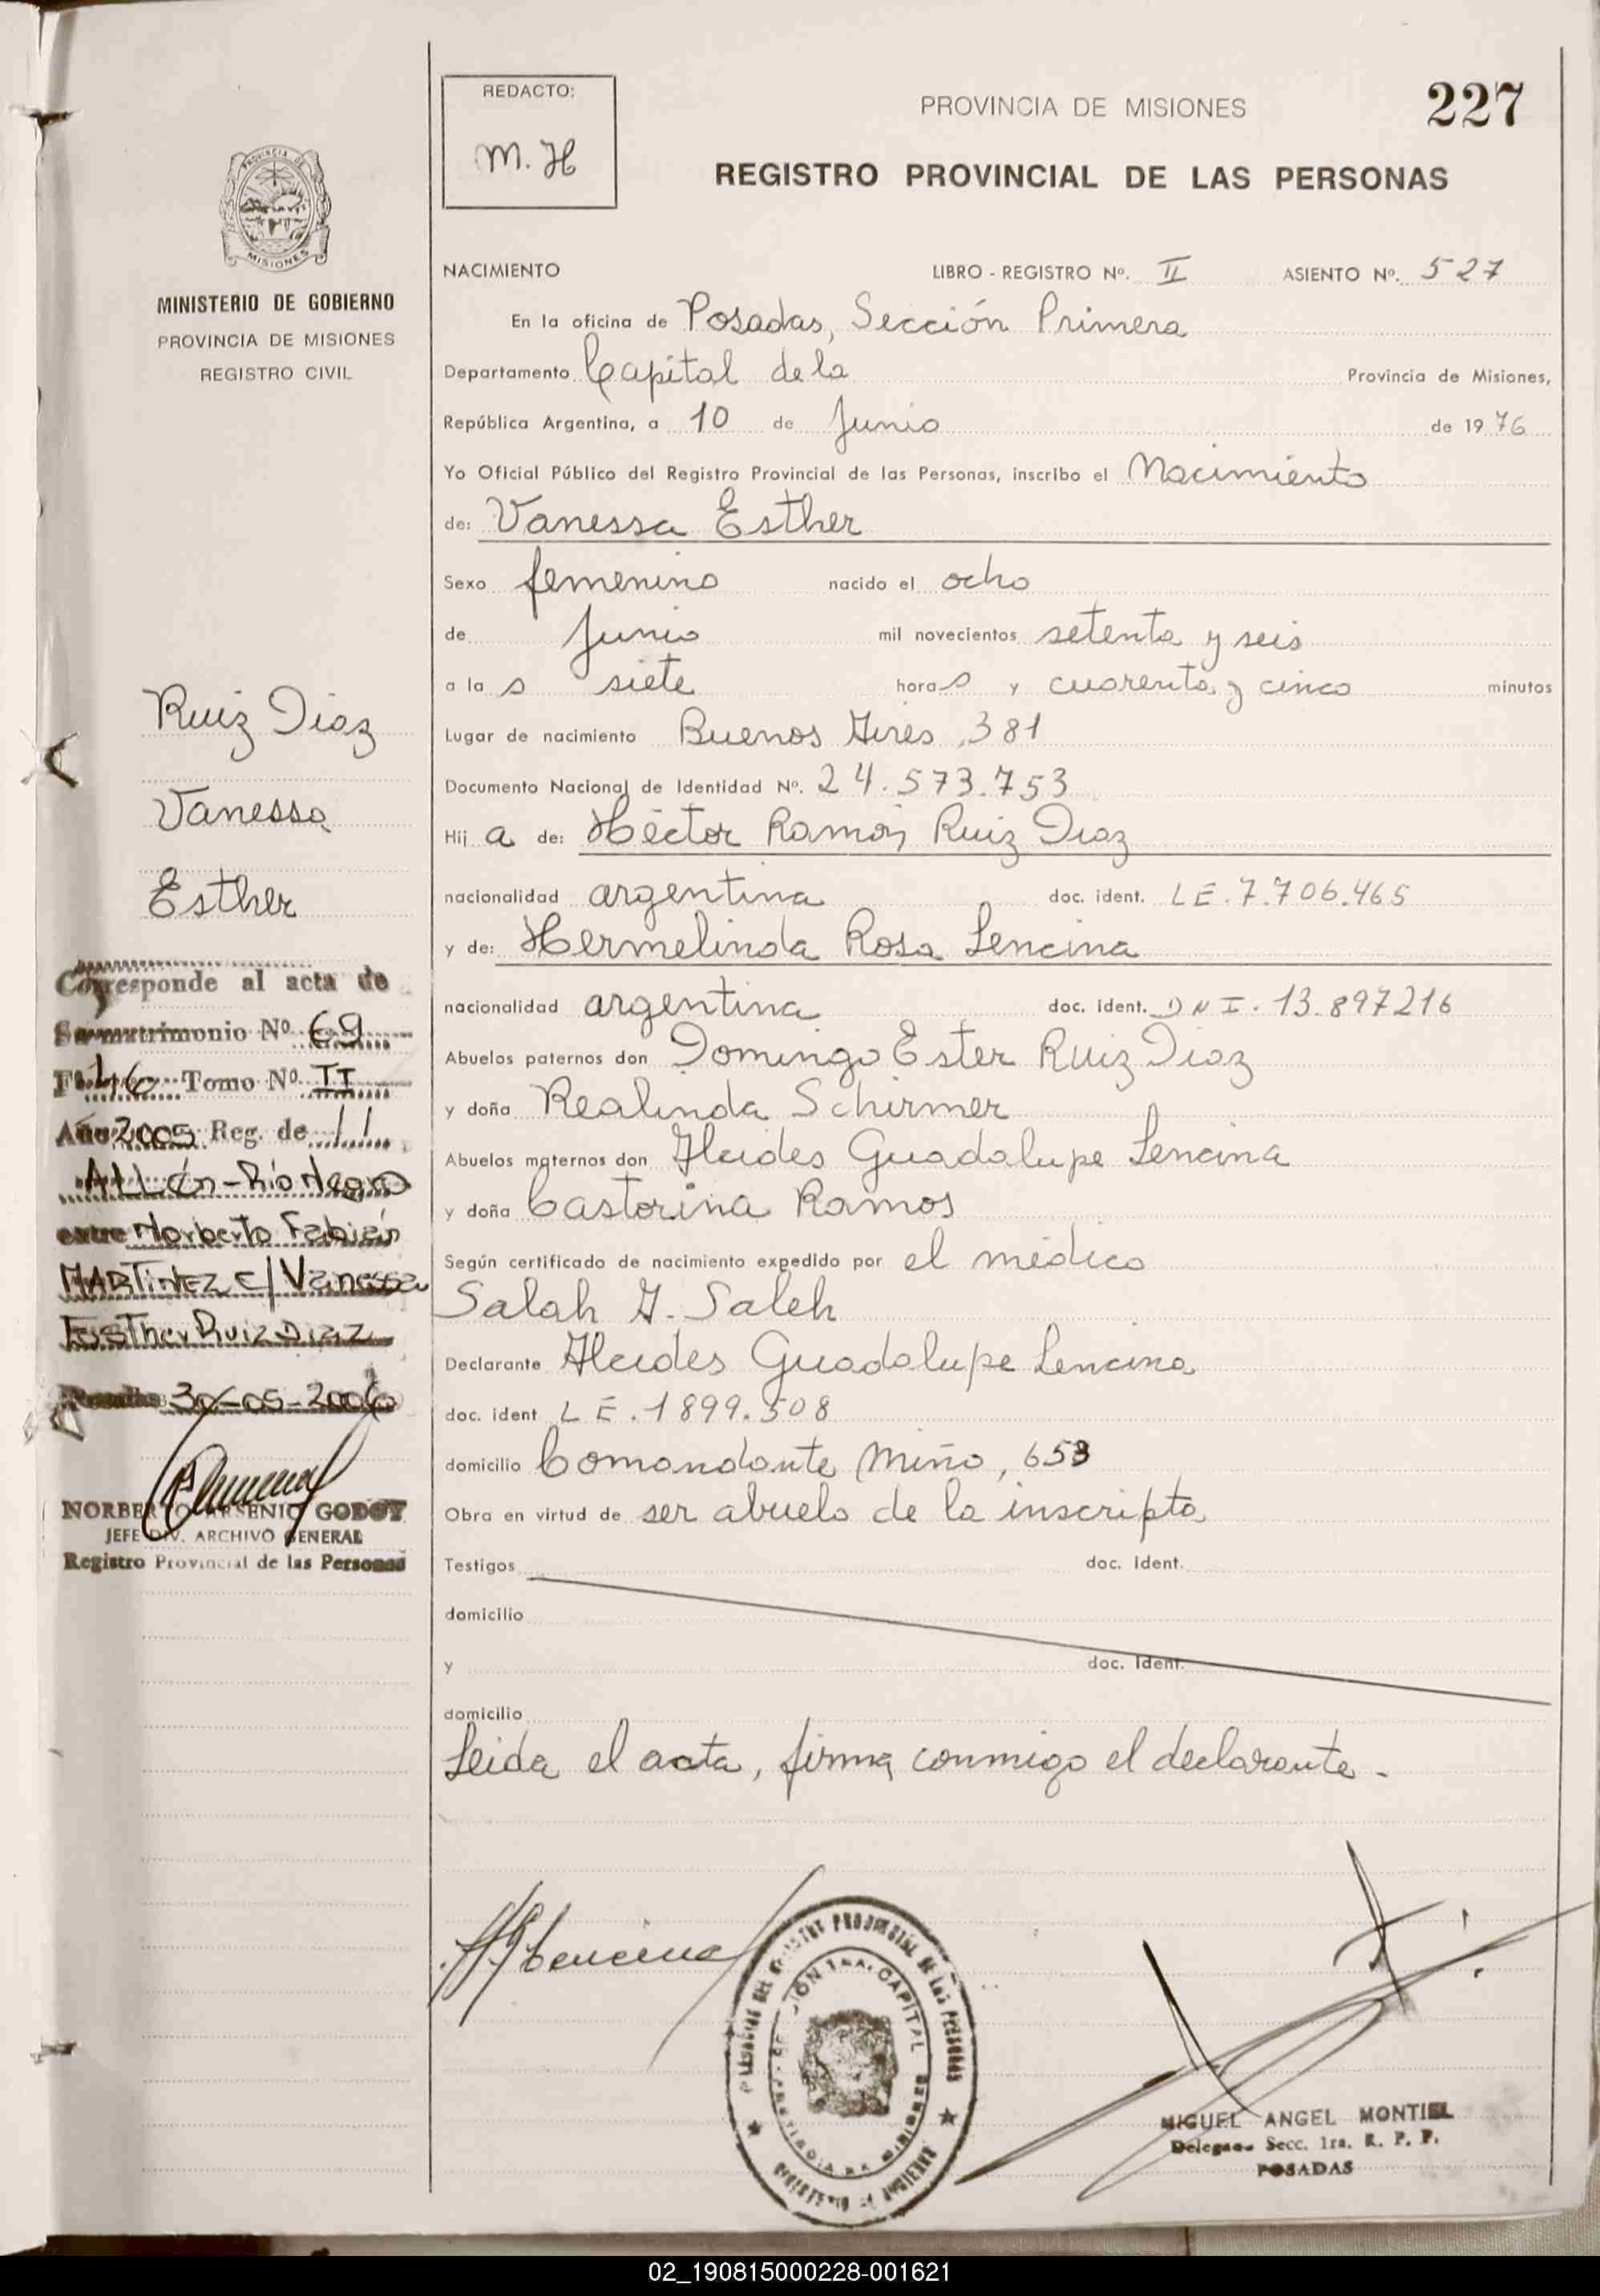 REDACTO:
M. H
PROVINCIA DE MISIONES
227
REGISTRO PROVINCIAL DE LAS PERSONAS
PROVINCIA DE
MISIONES
MINISTERIO DE GOBIERNO
PROVINCIA DE MISIONES
REGISTRO CIVIL
NACIMIENTO LIBRO - REGISTRO Nº. II ASIENTO Nº. 527
En la oficina de Posadas, Sección Primera
Departamento Capital de la Provincia de Misiones,
República Argentina, a 10 de Junio de 1976
Yo Oficial Público del Registro Provincial de las Personas, inscribo el Nacimiento
de: Vanessa Esther
Sexo femenino nacido el ocho
de Junio mil novecientos setenta y seis
a las siete horas y cuarenta y cinco minutos
Lugar de nacimiento Buenos Aires, 381
Documento Nacional de Identidad Nº. 24.573.753
Hija de: Héctor Ramón Ruiz Diaz
nacionalidad argentina doc. ident. LE. 7.706.465
y de: Hermelinda Rosa Lencina
nacionalidad argentina doc. ident. DNI. 13.897216
Abuelos paternos don Domingo Ester Ruiz Diaz
y doña Realinda Schirmer
Abuelos maternos don Alcides Guadalupe Lencina
y doña Castorina Ramos
Según certificado de nacimiento expedido por el médico
Salah A. Saleh
Declarante Alcides Guadalupe Lencina
doc. ident LE. 1899.508
domicilio Comandante Miño, 653
Obra en virtud de ser abuelo de la inscripta
Testigos doc. Ident.
domicilio
y doc. Ident.
domicilio
Leida el acta, firma conmigo el declarante.-
Ruiz Diaz
Vanessa
Esther
Corresponde al acta de
matrimonio Nº 69
Fº 46 Tomo Nº II
Año 2005 Reg. de 11
ALLén - Río Negro
entre Norberto Fabián
MARTíNEZ c/ Vanessa
Esther Ruiz Diaz
Posadas 30-05-2006
NORBERTO ARSENIO GODOY
JEFE DIV. ARCHIVO GENERAL
Registro Provincial de las Personas
Lencina
REGISTRO PROVINCIAL DE LAS PERSONAS
SECCIÓN 1RA. CAPITAL
MINISTERIO DE GOBIERNO
MIGUEL ANGEL MONTIEL
Delegado Secc. 1ra. R. P. P.
POSADAS
02_190815000228-001621